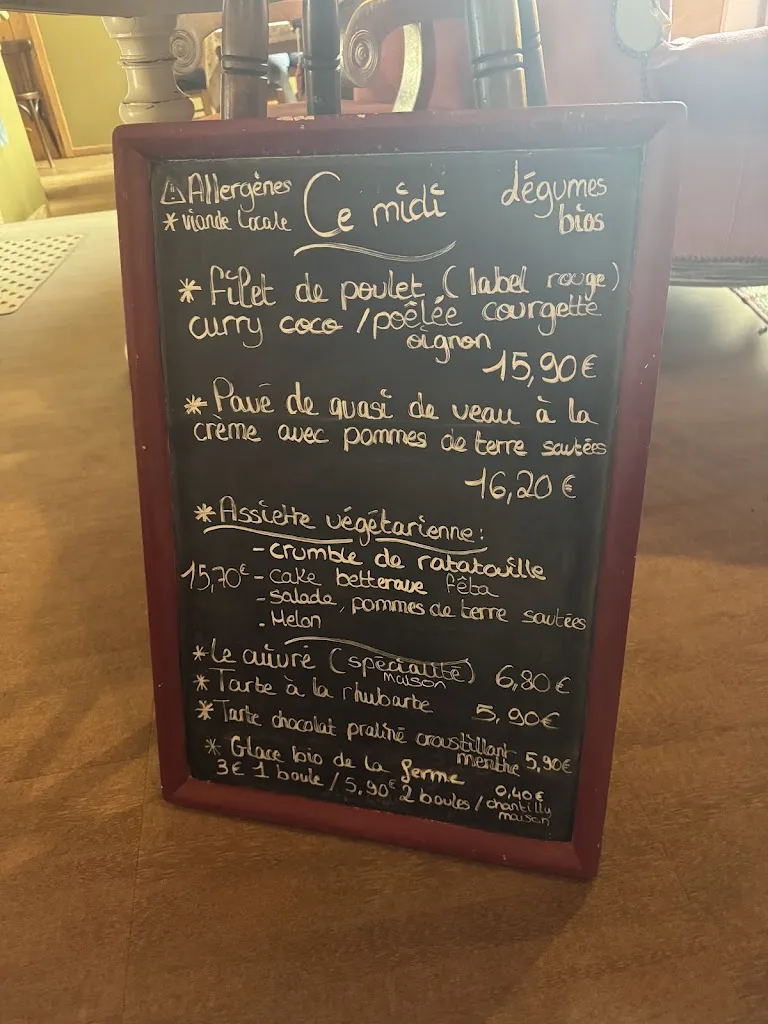 ⚠ Allergènes
* viande locale
Ce midi
dégumes
bios
* Filet de poulet (label rouge)
curry coco / poêlée courgette
oignon
15,90€
* Pavé de quasi de veau à la
crème avec pommes de terre sautées
16,20€
* Assiette végétarienne:
- crumble de ratatouille
15,70€ - cake betterave fêta
- salade, pommes de terre sautées
- Melon
* Le cuivré (spécialité) 6,80€
maison
* Tarte à la rhubarbe 5,90€
* Tarte chocolat praliné croustillant
menthe 5,90€
* Glace bio de la ferme
3€ 1 boule / 5,90€ 2 boules / chantilly
maison
0,40€